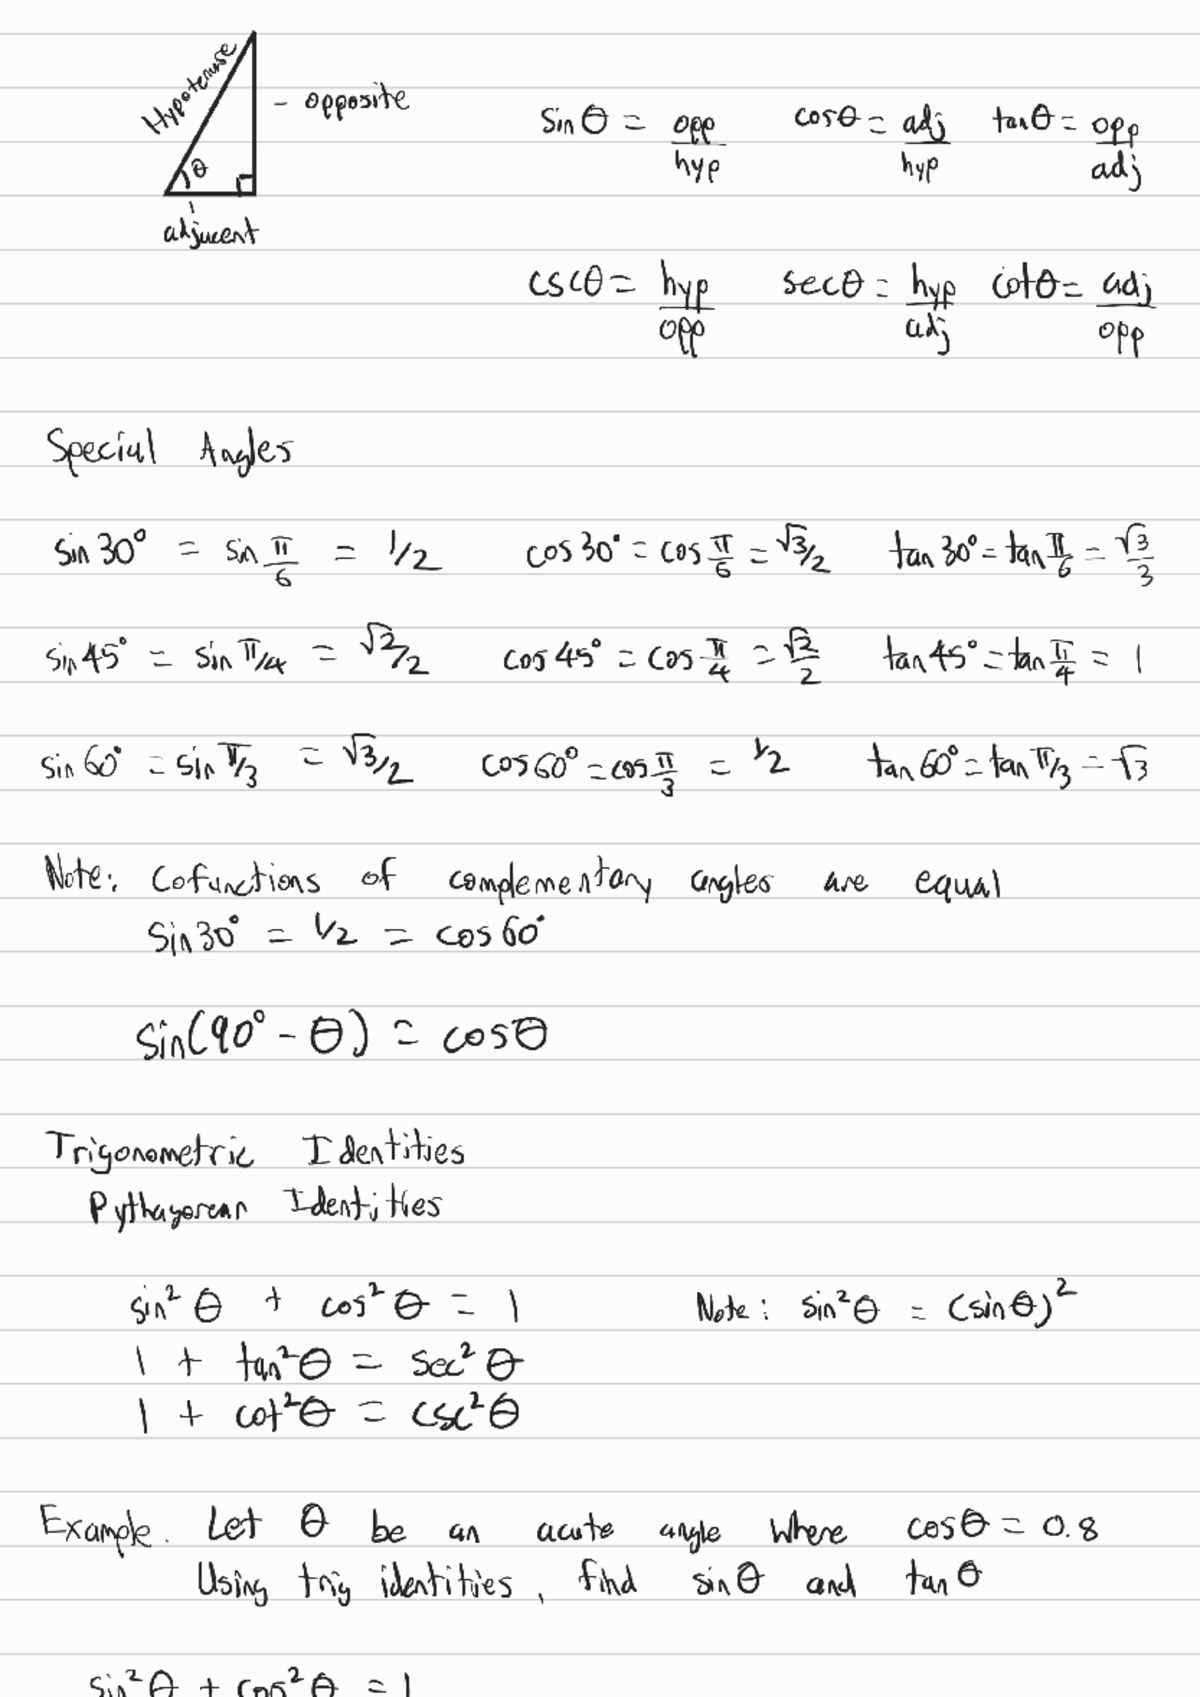 Hypotenuse
- opposite
θ
adjacent
sinθ = opp/hyp cosθ = adj/hyp tanθ = opp/adj
cscθ = hyp/opp secθ = hyp/adj cotθ = adj/opp
Special Angles
sin 30° = sin π/6 = 1/2 cos 30° = cos π/6 = √3/2 tan 30° = tan π/6 = √3/3
sin 45° = sin π/4 = √2/2 cos 45° = cos π/4 = √2/2 tan 45° = tan π/4 = 1
sin 60° = sin π/3 = √3/2 cos 60° = cos π/3 = 1/2 tan 60° = tan π/3 = √3
Note: Cofunctions of complementary angles are equal
Sin 30° = 1/2 = cos 60°
Sin(90° - θ) = cosθ
Trigonometric Identities
Pythagorean Identities
sin² θ + cos² θ = 1 Note: sin²θ = (sinθ)²
1 + tan²θ = sec² θ
1 + cot²θ = csc²θ
Example. Let θ be an acute angle where cosθ = 0.8
Using trig identities, find sinθ and tanθ
sin²θ + cos²θ = 1